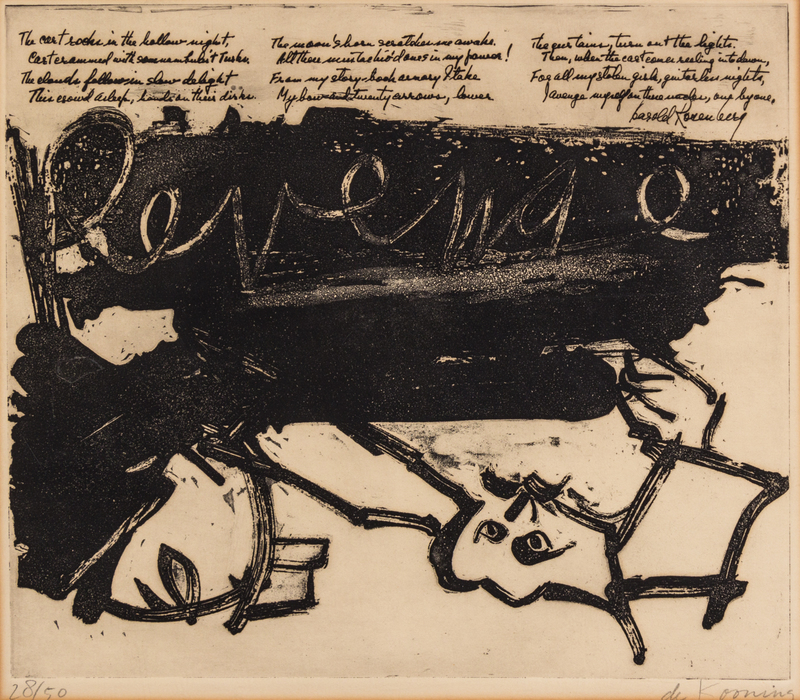 The cart rocks in the hollow night,
Cart crammed with somnambulist Turks.
The clouds follow in slow delight
This crowd asleep, hands on their dirks.
The moon's horn scratches me awake.
All these mustachio'd ones in my power!
From my story-book armory I take
My bow and twenty arrows, lower
The curtains, turn out the lights.
Then, when the cart comes reeling into dawn,
For all my stolen girls, nights,
I avenge myself on these, one by one,
Harold Rosenberg
Revenge
28/50
de Kooning